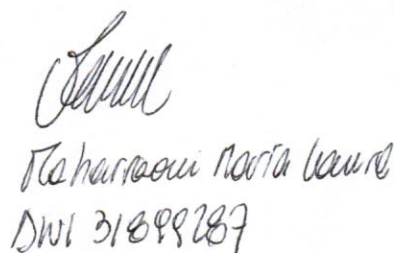 Maharraoui Maria Laura
DNI 31899287